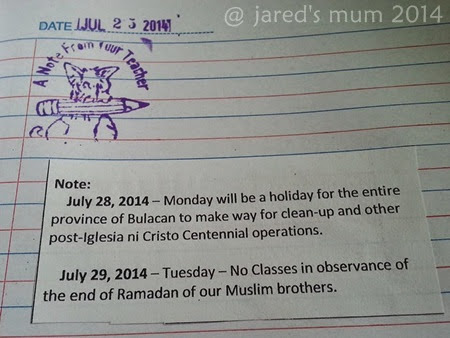 @ jared's mum 2014
DATE JUL 23 2014
A Note From Your Teacher
Note:
July 28, 2014 – Monday will be a holiday for the entire
province of Bulacan to make way for clean-up and other
post-Iglesia ni Cristo Centennial operations.
July 29, 2014 – Tuesday – No Classes in observance of
the end of Ramadan of our Muslim brothers.